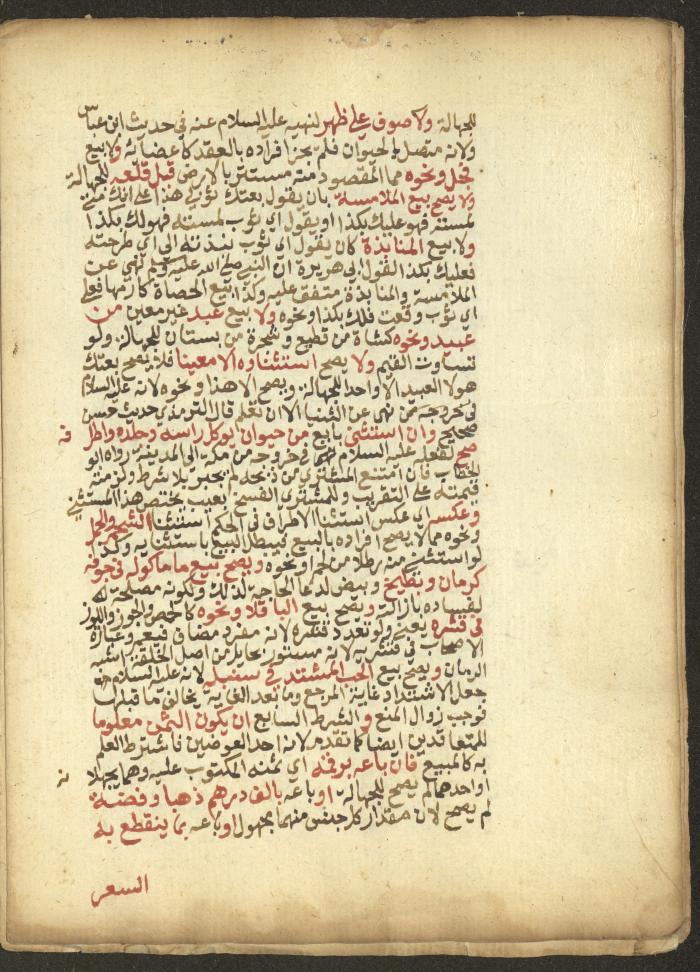 للجهالة ولا صوف على ظهر لنهيه عليه السلام عنه في حديث ابن عباس
ولانه متصل بالحيوان فلم يجز افراده بالعقد كاعضائه ولا بيع
فجل ونحوه مما المقصود منه مستتر بالارض قبل قلعه للجهالة
ولا يصح بيع الملامسة بان يقول بعتك ثوبي هذا على انك متى
لمسته فهو عليك بكذا او يقول اي ثوب لمسته فهو لك بكذا
ولا بيع المنابذة كان يقول اي ثوب نبذته الي اي طرحته
فعليك بكذا لقول ابي هريرة ان النبي صلى الله عليه وسلم نهى عن
الملامسة والمنابذة متفق عليه وكذا بيع الحصاة كارمها فعلى
اي ثوب وقعت فلك بكذا ونحوه ولا بيع عبد غير معين من
عبيد ونحوه كشاة من قطيع وشجرة من بستان للجهالة ولو
تساوت القيم ولا يصح استثناوه الا معينا فلا يصح بعتك
هولا العبيد الا واحدا للجهالة ويصح الا هذا ونحوه لانه عليه السلام
نهى عن الثنيا الا ان تعلم قال الترمذي حديث حسن
صحيح وان استثنى بايع من حيوان يوكل راسه وجلده واطرافه
صح لفعله عليه السلام في خروجه من مكة الى المدينة رواه ابو
الخطاب فان امتنع المشتري من ذبحه لم يجبر بلا شرط ولزمته
قيمته على التقريب وللمشتري الفسخ بعيب يختص هذا المستثنى
وعكسه اي عكس استثنا الاطراف في الحكم استثنا الشحم والحمل
ونحوه مما لا يصح افراده بالبيع فيبطل البيع باستثنايه وكذا
لو استثنى منه رطلا من لحم او نحوه ويصح بيع ما ماكوله في جوفه
كرمان وبطيخ وبيض لدعا الحاجة لذلك ولكونه مصلحة له
لفساده بازالته ويصح بيع الباقلا ونحوه كالحمص والجوز واللوز
في قشره يعني ولو تعدد قشره لانه مفرد مضاف فيعم وعبارة
الاصحاب في قشريه لانه مستور بحايل من اصل الخلقة اشبه
الرمان ويصح بيع الحب المشتد في سنبله لانه عليه السلام
جعل الاشتداد غاية المنع وما بعد الغاية يخالف ما قبلها
فوجب زوال المنع والشرط السابع ان يكون الثمن معلوما
للمتعاقدين ايضا كما تقدم لانه احد العوضين فاشترط العلم
به كالمبيع فان باعه برقمه اي ثمنه المكتوب عليه وهما يجهلانه
او احدهما لم يصح للجهالة او باعه بالف درهم ذهبا وفضة
لم يصح لان مقدار كل جنس منهما مجهول او باعه بما ينقطع به
السعر